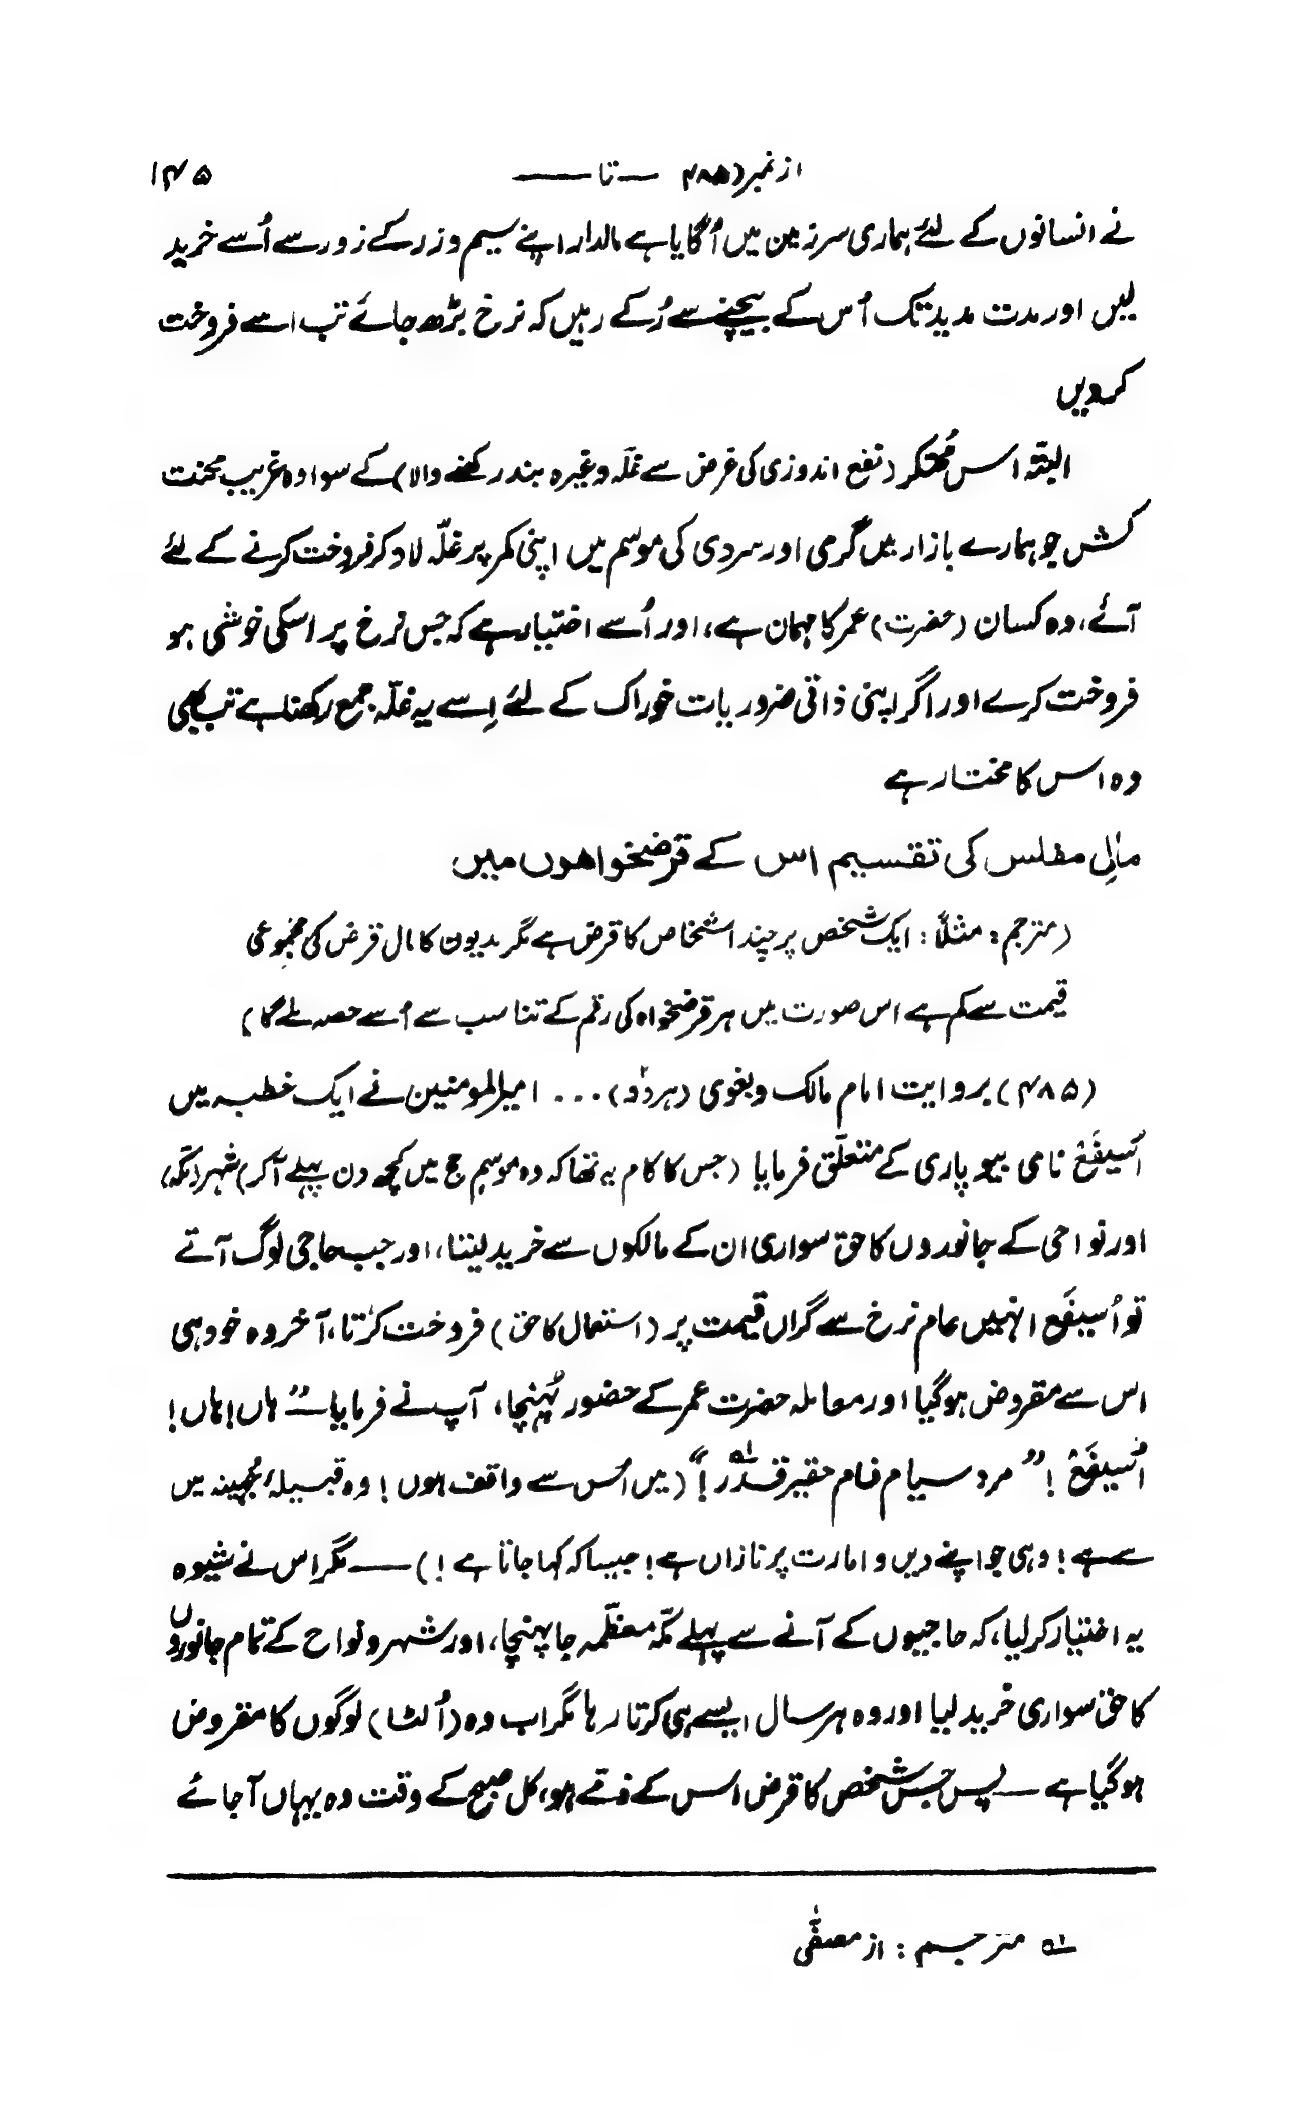 از نمبر (۴۸۵ — تا —— ۱۴۵
نے انسانوں کے لئے ہماری سرزمین میں اُگایا ہے مالدار اپنے سیم و زر کے زور سے اُسے خرید
لیں اور مدت مدید تک اُس کے بیچنے سے رُکے رہیں کہ نرخ بڑھ جائے تب اسے فروخت
کردیں
البتہ اس مُحتکر (نفع اندوزی کی غرض سے غلّہ وغیرہ بند رکھنے والا) کے سوا وہ غریب محنت
کش جو ہمارے بازار میں گرمی اور سردی کی موسم میں اپنی کمر پر غلّہ لاد کر فروخت کرنے کے لئے
آئے، وہ کسان (حضرت) عمر کا مہمان ہے، اور اُسے اختیار ہے کہ جس نرخ پر اسکی خوشی ہو
فروخت کرے اور اگر اپنی ذاتی ضروریات خوراک کے لئے اِسے یہ غلّہ جمع رکھنا ہے تب بھی
وہ اس کا مختار ہے
مالِ مفلس کی تقسیم اس کے قرضخواھوں میں
(مترجم: مثلاً: ایک شخص پر چند اشخاص کا قرض ہے مگر مدیون کا مال قرض کی مجموعی
قیمت سے کم ہے اس صورت میں ہر قرضخواہ کی رقم کے تناسب سے اُسے حصہ ملے گا)
(۴۸۵) بروایت امام مالک و بغوی (ہردو) ... امیرالمومنین نے ایک خطبہ میں
اُسَیفَعْ نامی بیوپاری کے متعلّق فرمایا (جس کا کام یہ تھا کہ وہ موسم حج میں کچھ دن پہلے آ کر) شہر (مکہ)
اور نواحی کے جانوروں کا حق سواری ان کے مالکوں سے خرید لیتا، اور جب حاجی لوگ آتے
تو اُسیفَع انہیں عام نرخ سے گراں قیمت پر (استعمال کا حق) فروخت کرتا، آخر وہ خود ہی
اس سے مقروض ہوگیا اور معاملہ حضرت عمر کے حضور پُہنچا، آپ نے فرمایا — ”ہاں! ہاں!
اُسیفَعْ ! ” مرد سیاہ فام حقیر قدّر !“ (میں اُس سے واقف ہوں ! وہ قبیلۂ جُہینہ میں
سے ہے ! وہی جو اپنے دین و امارت پر نازاں ہے ! جیسا کہ کہا جاتا ہے !) — مگر اس نے شیوہ
یہ اختیار کر لیا، کہ حاجیوں کے آنے سے پہلے مکّہ معظّمہ جا پہنچا، اور شہر و نواح کے تمام جانوروں
کا حق سواری خرید لیا اور وہ ہر سال ایسے ہی کرتا رہا مگر اب وہ (اُلٹا) لوگوں کا مقروض
ہوگیا ہے — پس جس شخص کا قرض اس کے ذمّے ہو، کل صبح کے وقت وہ یہاں آجائے
؎۱ مترجم : از مصفّٰی